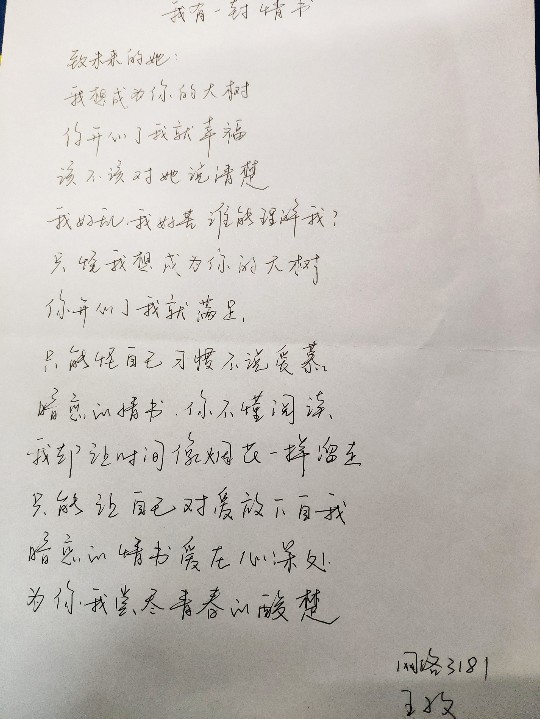 我有一封情书
致未来的她:
我想成为你的大树
你开心了我就幸福
该不该对她说清楚
我好乱.我好苦 谁能理解我?
只悦我想成为你的大树
你开心了我就满足.
只能怪自己习惯不说爱慕.
暗恋的情书.你不懂阅读.
我却让时间像烟花一样溜走
只能让自己对爱放下自我
暗恋的情书爱在心深处.
为你.我尝尽青春的酸楚
网络3181
王